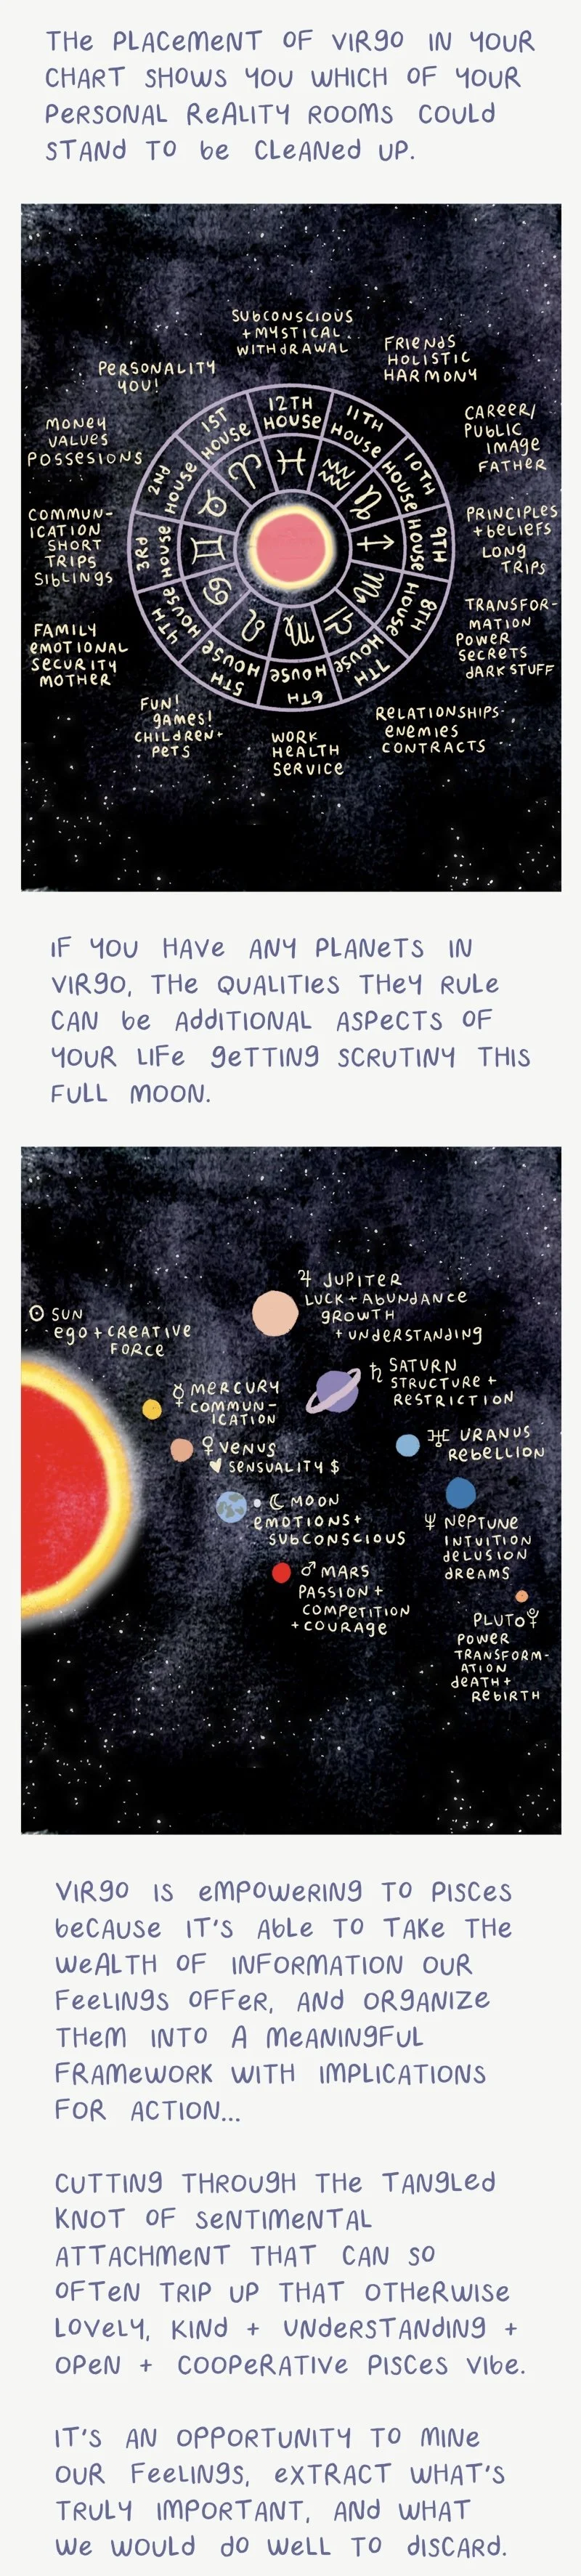 THE PLACEMENT OF VIRGO IN YOUR
CHART SHOWS YOU WHICH OF YOUR
PERSONAL REALITY ROOMS COULD
STAND TO BE CLEANED UP.
SUBCONSCIOUS
+ MYSTICAL
WITHDRAWAL
FRIENDS
HOLISTIC
HARMONY
PERSONALITY
YOU!
CAREER/
PUBLIC
IMAGE
FATHER
MONEY
VALUES
POSSESIONS
PRINCIPLES
+ BELIEFS
LONG
TRIPS
COMMUN-
ICATION
SHORT
TRIPS
SIBLINGS
TRANSFOR-
MATION
POWER
SECRETS
DARK STUFF
FAMILY
EMOTIONAL
SECURITY
MOTHER
FUN!
GAMES!
CHILDREN+
PETS
WORK
HEALTH
SERVICE
RELATIONSHIPS
ENEMIES
CONTRACTS
12TH HOUSE
11TH HOUSE
10TH HOUSE
9TH HOUSE
8TH HOUSE
7TH HOUSE
6TH HOUSE
5TH HOUSE
4TH HOUSE
3RD HOUSE
2ND HOUSE
1ST HOUSE
♓
♒
♑
♐
♏
♎
♍
♌
♋
♊
♉
♈
IF YOU HAVE ANY PLANETS IN
VIRGO, THE QUALITIES THEY RULE
CAN BE ADDITIONAL ASPECTS OF
YOUR LIFE GETTING SCRUTINY THIS
FULL MOON.
☉ SUN
EGO + CREATIVE
FORCE
♃ JUPITER
LUCK + ABUNDANCE
GROWTH
+ UNDERSTANDING
♄ SATURN
STRUCTURE +
RESTRICTION
☿ MERCURY
COMMUN-
ICATION
♀ VENUS
♥ SENSUALITY $
♅ URANUS
REBELLION
☾ MOON
EMOTIONS +
SUBCONSCIOUS
♆ NEPTUNE
INTUITION
DELUSION
DREAMS
♂ MARS
PASSION +
COMPETITION
+ COURAGE
PLUTO ⯓
POWER
TRANSFORM-
ATION
DEATH +
REBIRTH
VIRGO IS EMPOWERING TO PISCES
BECAUSE IT'S ABLE TO TAKE THE
WEALTH OF INFORMATION OUR
FEELINGS OFFER, AND ORGANIZE
THEM INTO A MEANINGFUL
FRAMEWORK WITH IMPLICATIONS
FOR ACTION...
CUTTING THROUGH THE TANGLED
KNOT OF SENTIMENTAL
ATTACHMENT THAT CAN SO
OFTEN TRIP UP THAT OTHERWISE
LOVELY, KIND + UNDERSTANDING +
OPEN + COOPERATIVE PISCES VIBE.
IT'S AN OPPORTUNITY TO MINE
OUR FEELINGS, EXTRACT WHAT'S
TRULY IMPORTANT, AND WHAT
WE WOULD DO WELL TO DISCARD.